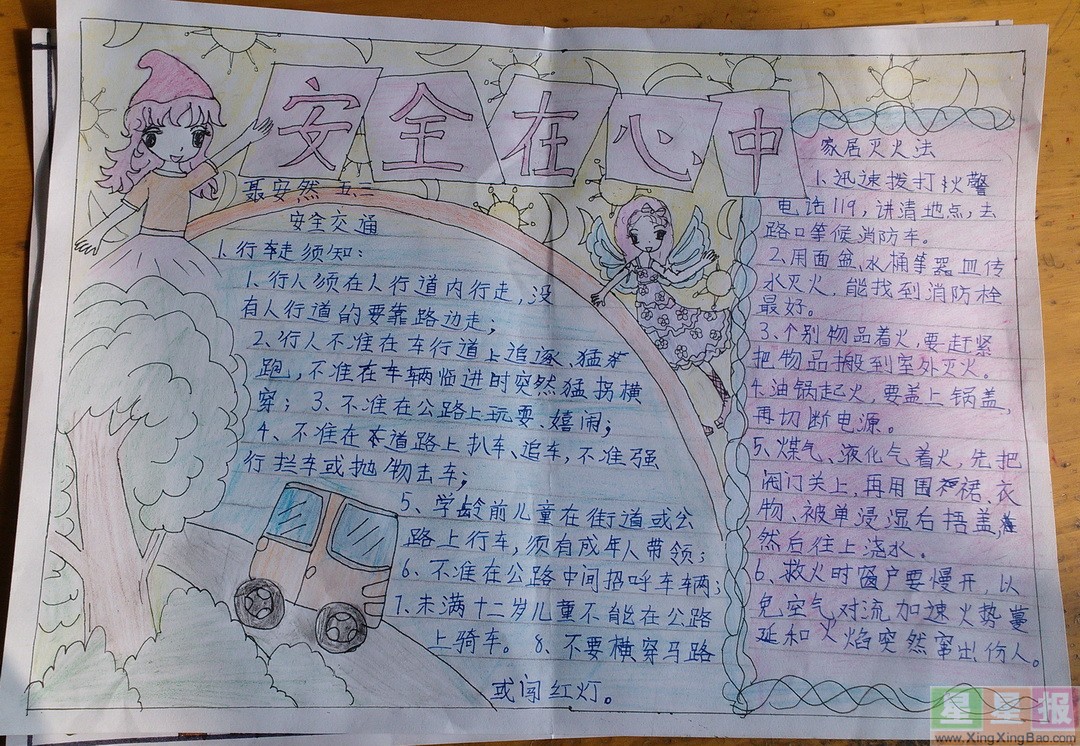 安全在心中
聂安然 五二
安全交通
1.行车走须知：
1.行人须在人行道内行走，没
有人行道的要靠路边走；
2.行人不准在车行道上追逐、猛
跑，不准在车辆临进时突然猛拐横
穿；3、不准在公路上玩耍、嬉闹；
4、不准在本道路上扒车、追车，不准强
行拦车或抛物击车；
5、学龄前儿童在街道或公
路上行车，须有成年人带领；
6、不准在公路中间招呼车车辆；
7、未满十二岁儿童不能在公路
上骑车。8、不要横穿马路
或闯红灯。
家居灭火法
1.迅速拨打火警
电话119，讲清地点，去
路口等候消防车。
2.用面盆、水桶等器皿传
水灭火，能找到消防栓
最好。
3.个别物品着火，要赶紧
把物品搬到室外灭火。
4.油锅起火，要盖上锅盖，
再切断电源。
5、煤气、液化气着火，先把
阀门关上，再用围裙、衣
物、被单浸湿右捂盖，
然后往上浇水。
6、救火时窗户要慢开，以
免空气对流加速火势蔓
延和火焰突然窜出伤人。
星星报
www.XingXingBao.com